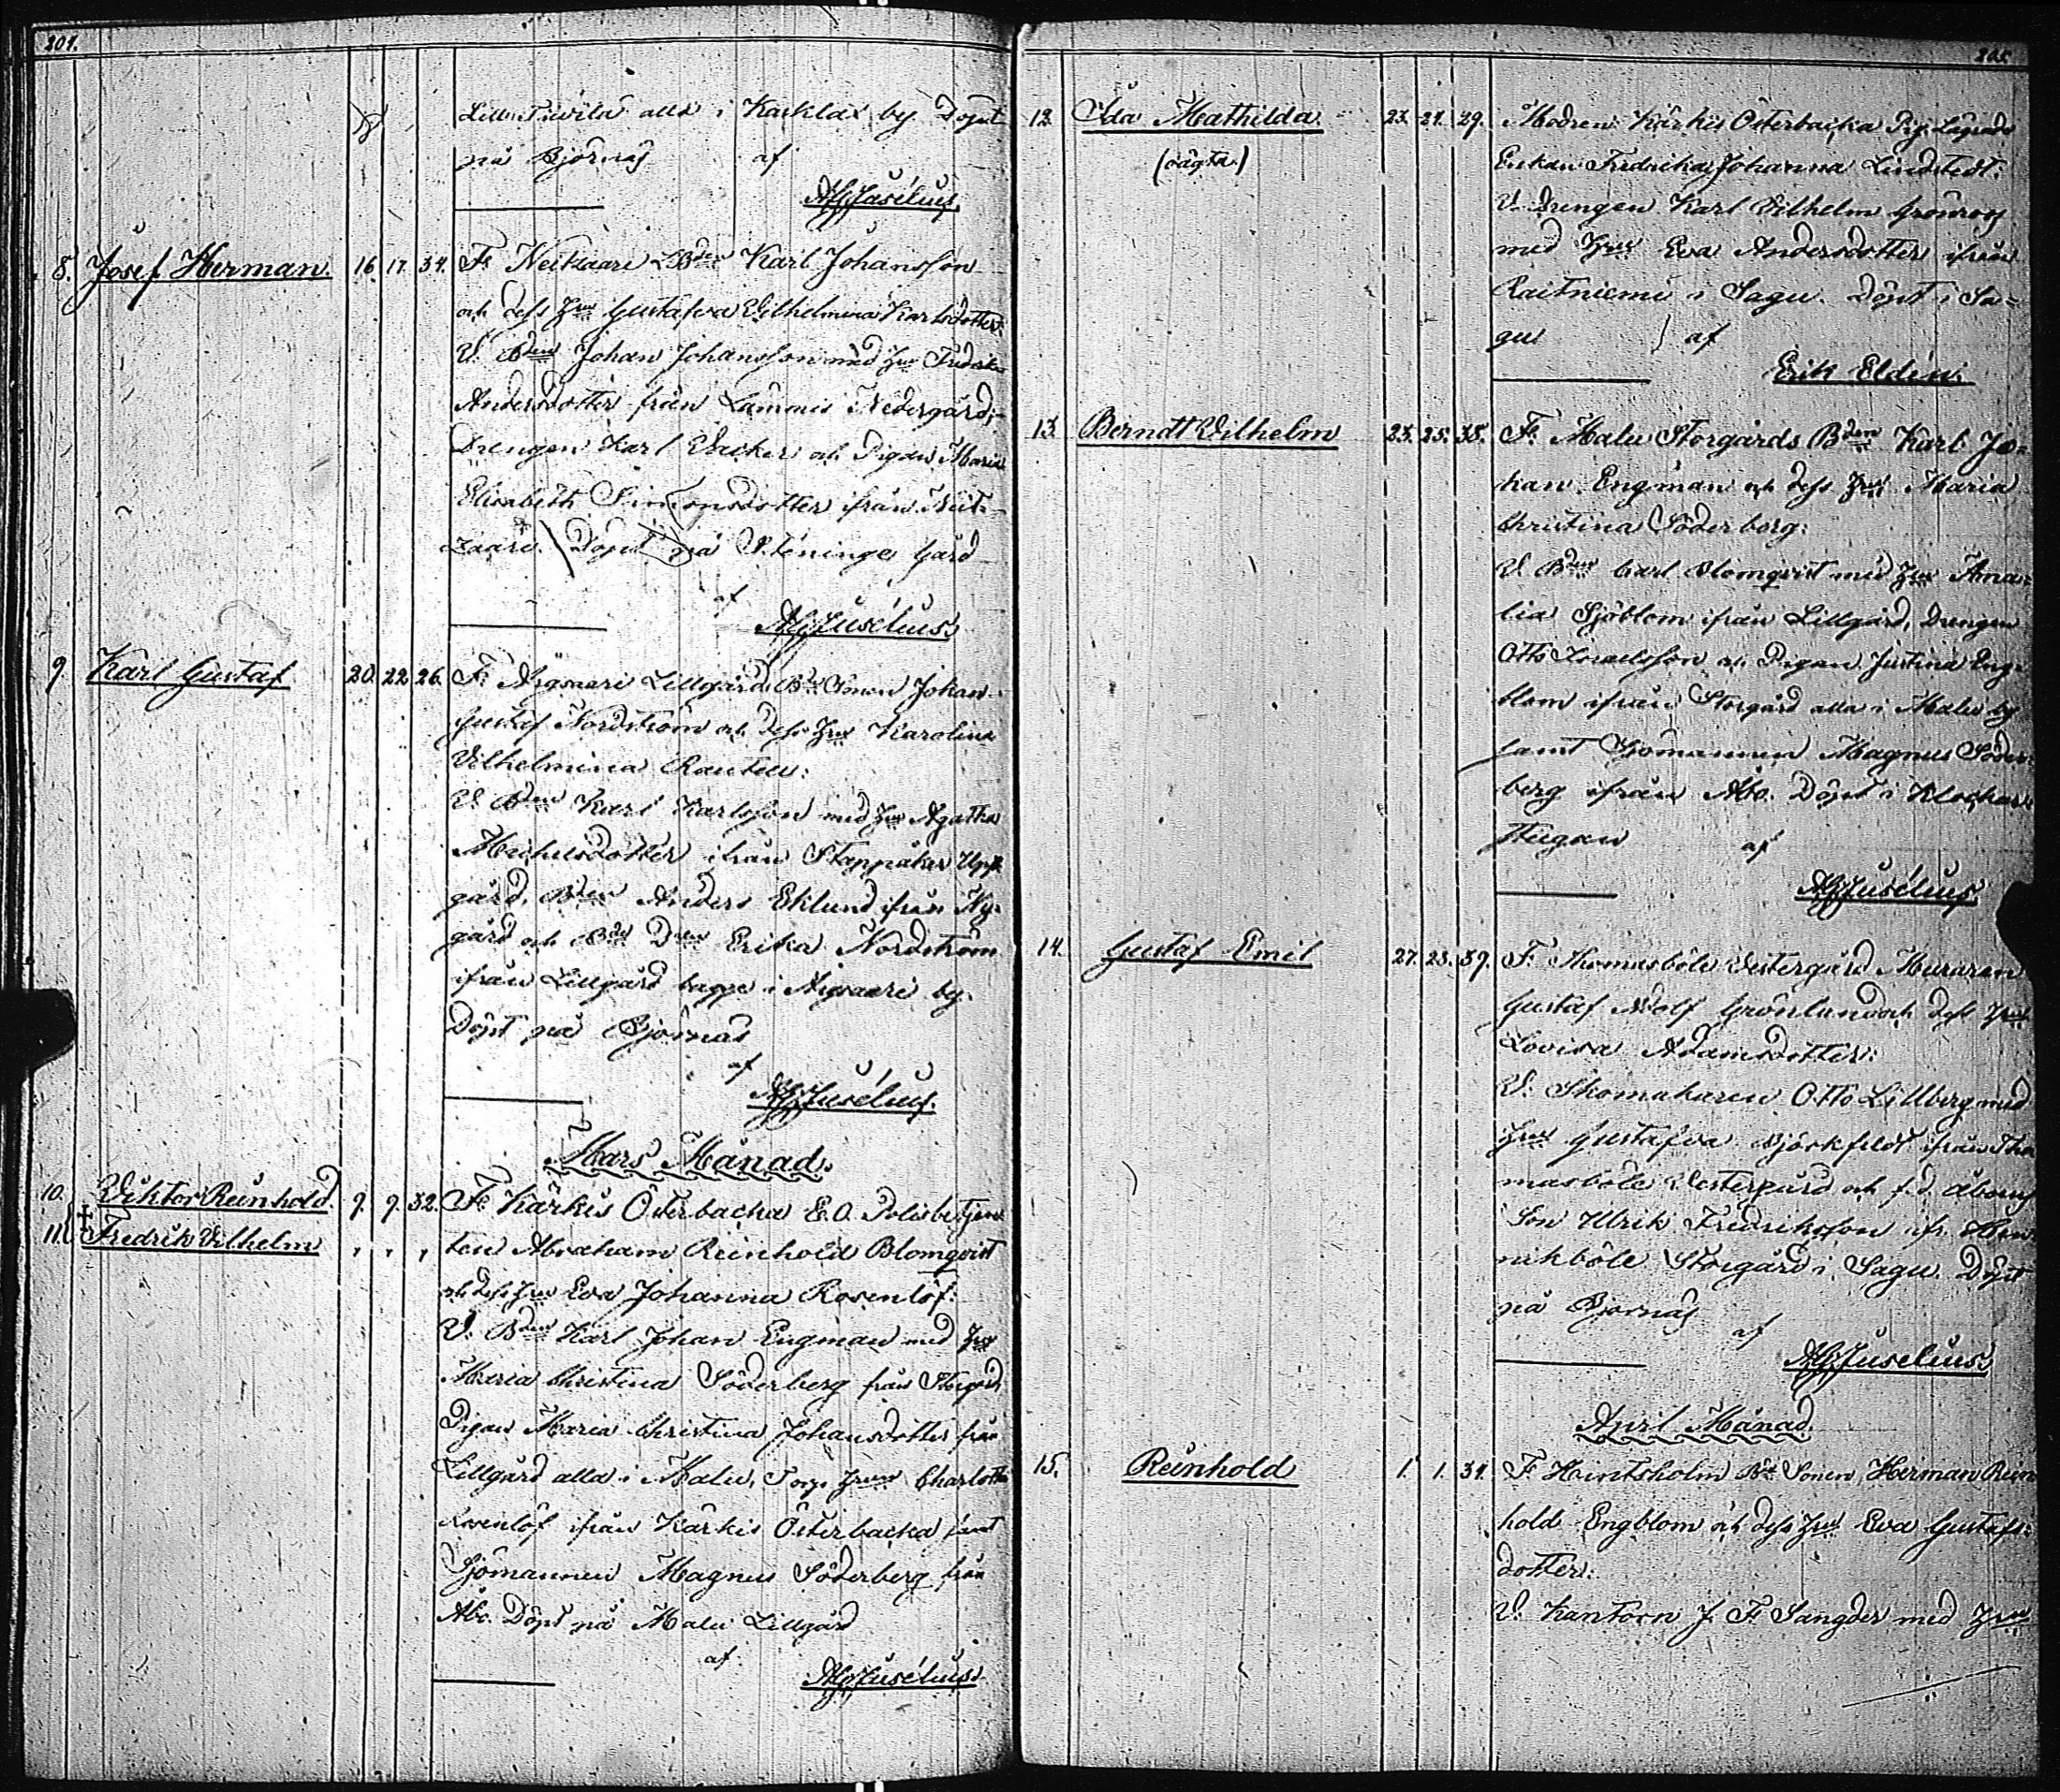 204.
alla i Karklax by. Döpt
på Bjornäs af
AGJusélius.
8. Josef Herman. 16. 17. 34. F. Neikaari Karl Johansson
och dess Hru Gustafva Vilhelmina Karlsdotter.
V. Bden Johan Johansson med Hru Fredrika
Andersdotter från Lammis Nedergård;
Drengen Karl och Pigan Maria
Elisabeth Simonsdotter ifrån Neit-
kaari. Döpt på Steninge Gård
af
AGJusélius.
9. Karl Gustaf 20. 22. 26. F. Aigsaari Lillgård Bde Sonen Johan
Gustaf Nordström och dess Hru Karolina
Vilhelmina Rautell:
V. Bden Karl Karlsson med Hru Agatha
Michelsdotter ifrån Stappåker Upp-
gård, Bden Anders Eklund ifrån Ny-
gård och Bde Dren Erika Nordström
ifrån Lillgård bagge i Aigsaari by.
Döpt på Bjornäs
af
AGJusélius.
Mars Månad.
10. Viktor Reinhold. 9. 9. 32. F. Karkis Österbacka E.O. Polisbetjen-
11. † Fredrik Vilhelm , , , ten Abraham Reinhold Blomqvist
och dess Hru Eva Johanna Rosenlöf:
V. Bden Karl Johan Engman med Hru
Maria Christina Söderberg från Storgård,
Pigan Maria Christina Johansdotter från
Lillgård alla i Malu, Torp. Hrun Charlotta
Rosenlöf ifrån Karkis Österbacka samt
Sjömannen Magnus Söderberg från
Åbo. Döpt på Malu Lillgård
af
AGJusélius
205.
12. Ida Mathilda 23. 24. 29. Modren: Karkis Österbacka
(oägta) Enkan Fredrika Johanna Lindstedt:
V. Drengen Karl Vilhelm Grönroos
med Hru Eva Andersdotter ifrån
Raitniemi i Sagu. Döpt i Sa-
gu af
Erik Eldin.
13. Berndt Vilhelm 23. 25. 38. F. Malu Storgårds Bden Karl Jo-
han Engman och dess Hru Maria
Christina Söderberg:
V. Bden Carl Blomqvist med Hru Ama-
lia Sjöblom ifrån Lillgård, Drengen
Otto Israelsson och Pigan Justina Eng-
blom ifrån Storgård alla i Malu by
samt Sjömannen Magnus Söder-
berg ifrån Åbo. Döpt i Klockar-
stugan af
AGJusélius.
14. Gustaf Emil 27. 28. 39. F. Thomasböle Vestergård Muraren
Gustaf Adolf Grönlund och dess Hru
Lovisa Adamsdotter:
V. Skomakaren Otto Lillberg med
Hru Gustafva Björkfeldt ifrån Tho-
masböle Vestergård och f.d. Åboens
Son Ulrik Fredriksson ifr. Hen-
rikböle Storgård i Sagu. Döpt
på Bjornäs
af
AGJusélius
April Månad.
15. Reinhold 1. 1. 34. F. Hintsholm Bde Sonen Herman Rein-
hold Engblom och dess Hru Eva Gustafs-
dotter:
V. Kantorn J. F. Sangder med Hru